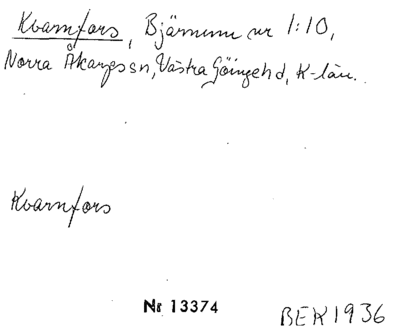 Kvarnfors, Bjärnum nr 1:10,
Norra Åkarps sn, Västra Göingehd, K-län.
Kvarnfors
Nr 13374
BEK 1936